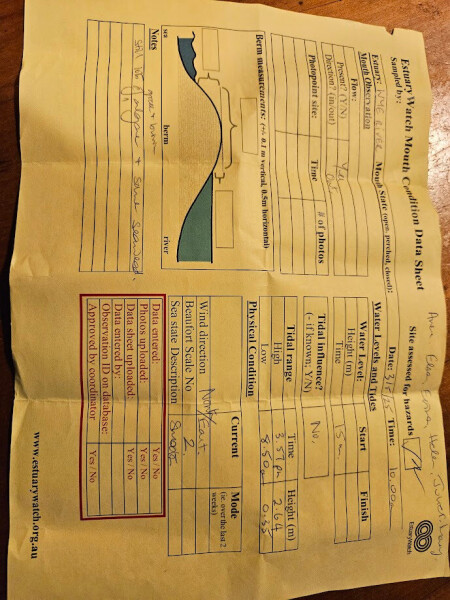 Estuary Watch Mouth Condition Data Sheet
EstuaryWatch
Sampled by:
Site assessed for hazards
Estuary:
Mouth State (open, perched, closed):
Date: Time: 10.00
Mouth Observation
Flow:
Present? (Y/N) Yes
Direction? (in/out) Out
Photopoint site: Time # of photos
Water Levels and Tides
Water Level: Start Finish
Time
Height (m)
Tidal influence? No.
(- if known; Y/N)
Tidal range Time Height (m)
High 3.57pm 2.64
Low 8.50am 0.35
Berm measurements: (+/- 0.1 m vertical, 0.5m horizontal)
sea berm river
Physical Condition Current Mode
(ie. over the last 2 weeks)
Wind direction North East
Beaufort Scale No 2
Sea state Description Smooth
Notes
algae + some seaweed.
Data entered: Yes / No
Photos uploaded: Yes / No
Data sheet uploaded: Yes / No
Data entered by:
Observation ID on database:
Approved by coordinator Yes / No
www.estuarywatch.org.au